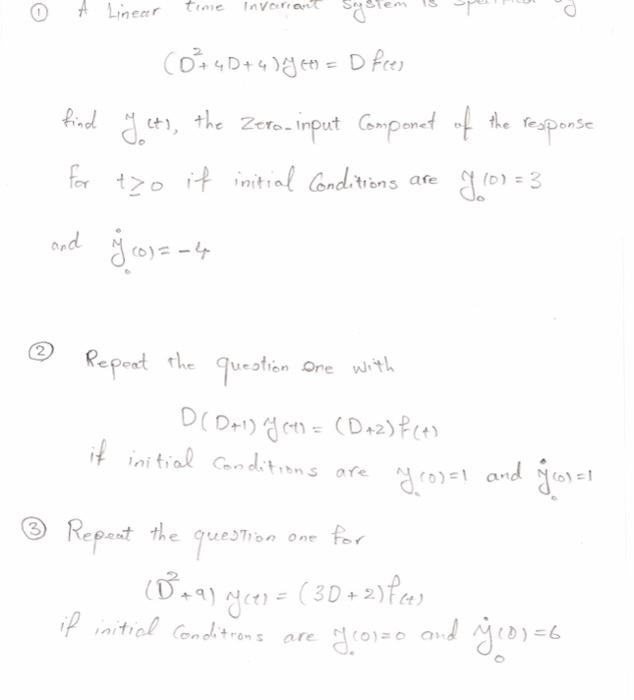 ① A Linear time Invariant System is
(D²+4D+4)y(t) = D f(t)
find y₀(t), the Zero-input Componet of the response
for t≥0 if initial Conditions are y₀(0) = 3
and ẏ₀(0) = -4
② Repeat the question one with
D(D+1) y(t) = (D+2) f(t)
if initial Conditions are y₀(0)=1 and ẏ₀(0)=1
③ Repeat the question one for
(D²+9) y(t) = (3D+2) f(t)
if initial Conditions are y₀(0)=0 and ẏ₀(0)=6